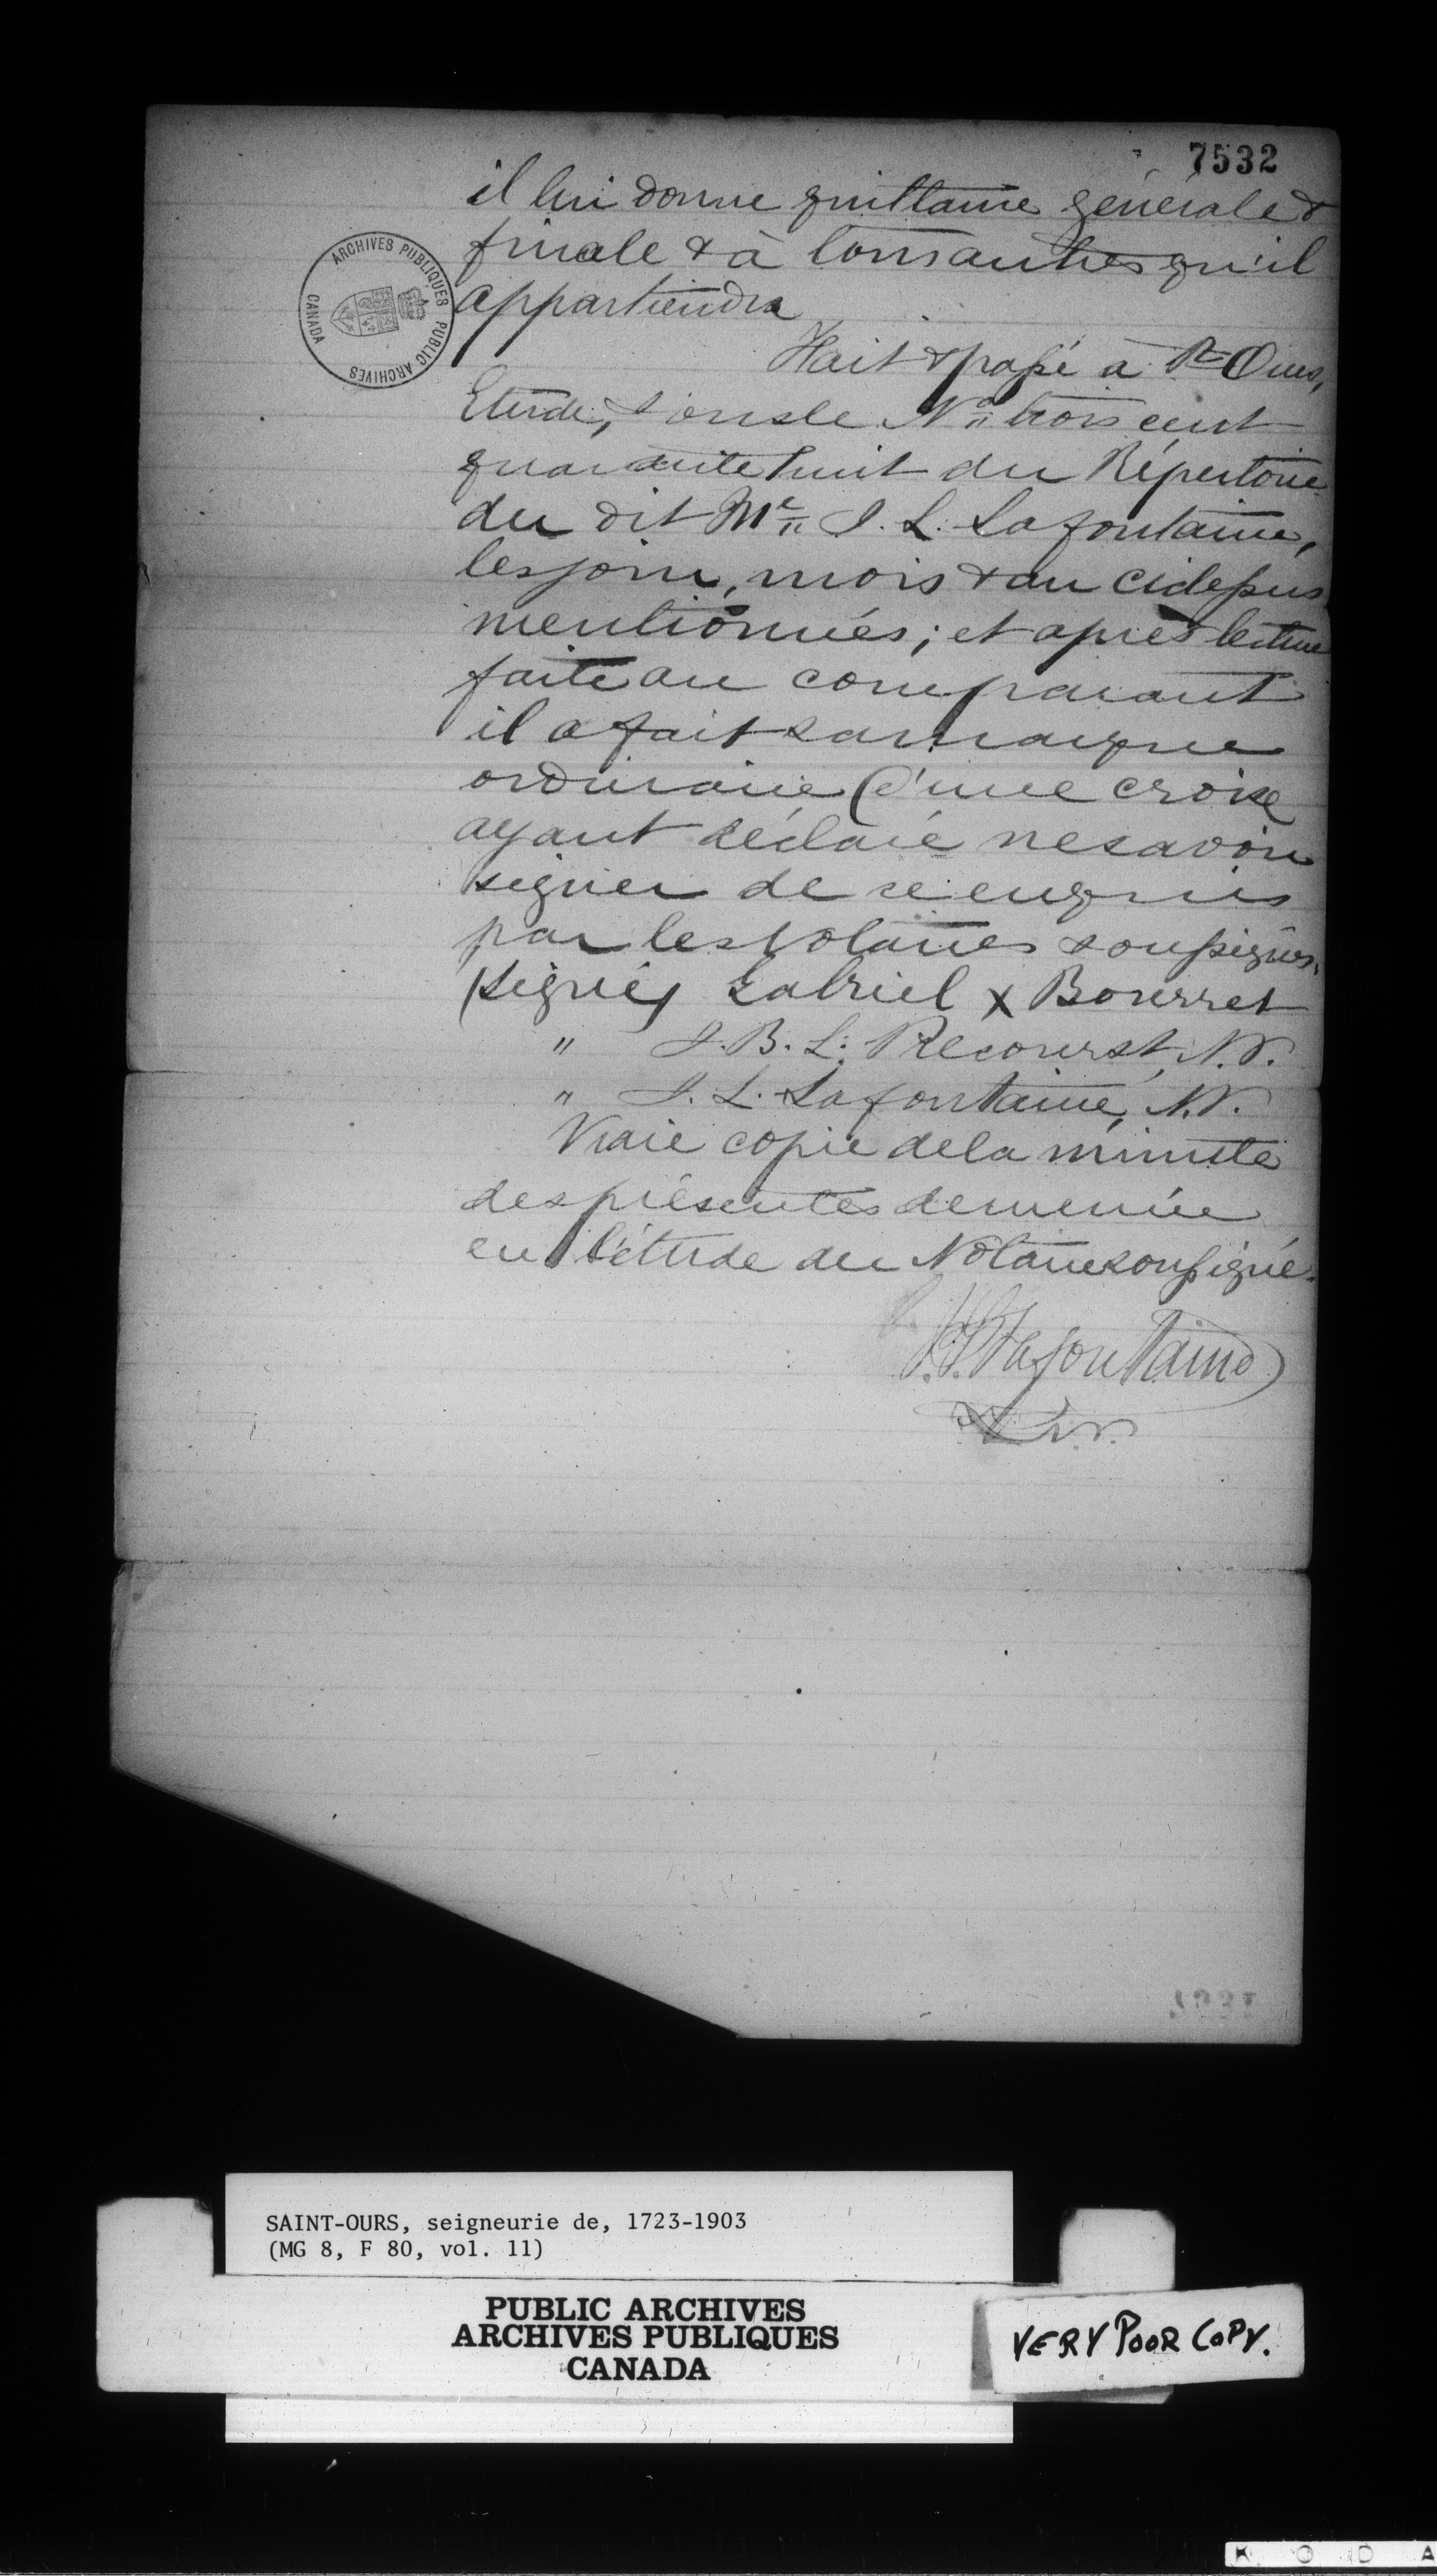 7532
il lui donne quittance générale &
finale & à tous autres qu'il
appartiendra
Fait & passé à St Ours,
Etude, sous le No trois cent
quarante huit du Répertoire
du dit Me J. L. Lafontaine,
les jour, mois & an cidessus
mentionnés; et après lecture
faite au comparant
il a fait sa marque
ordinaire d'une croix
ayant déclaré ne savoir
signer de ce enquis
par les Notaires soussignés.
(signé) Gabriel X Bourret
" J. B. L. Précourst, N.P.
" J. L. Lafontaine, N.P.
Vraie copie de la minute
des présentes demeurée
en l'étude du Notaire soussigné.
J. L. Lafontaine
N.P.
ARCHIVES PUBLIQUES PUBLIC ARCHIVES CANADA
7531
SAINT-OURS, seigneurie de, 1723-1903
(MG 8, F 80, vol. 11)
PUBLIC ARCHIVES
ARCHIVES PUBLIQUES
CANADA
VERY POOR COPY.
K O D A